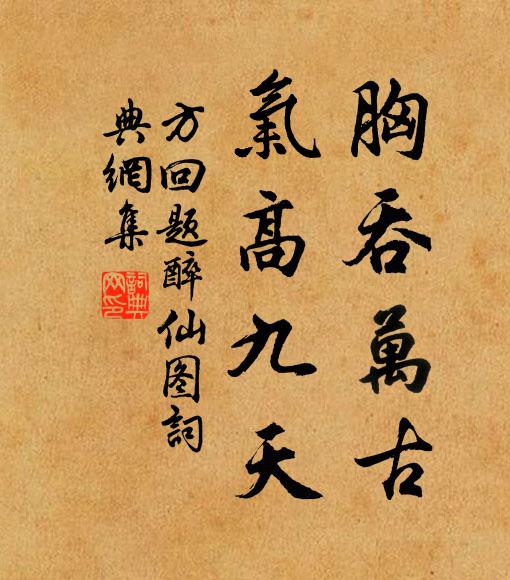 胸吞萬古
氣高九天
方回题醉仙图詞
典網集
詞典
网印